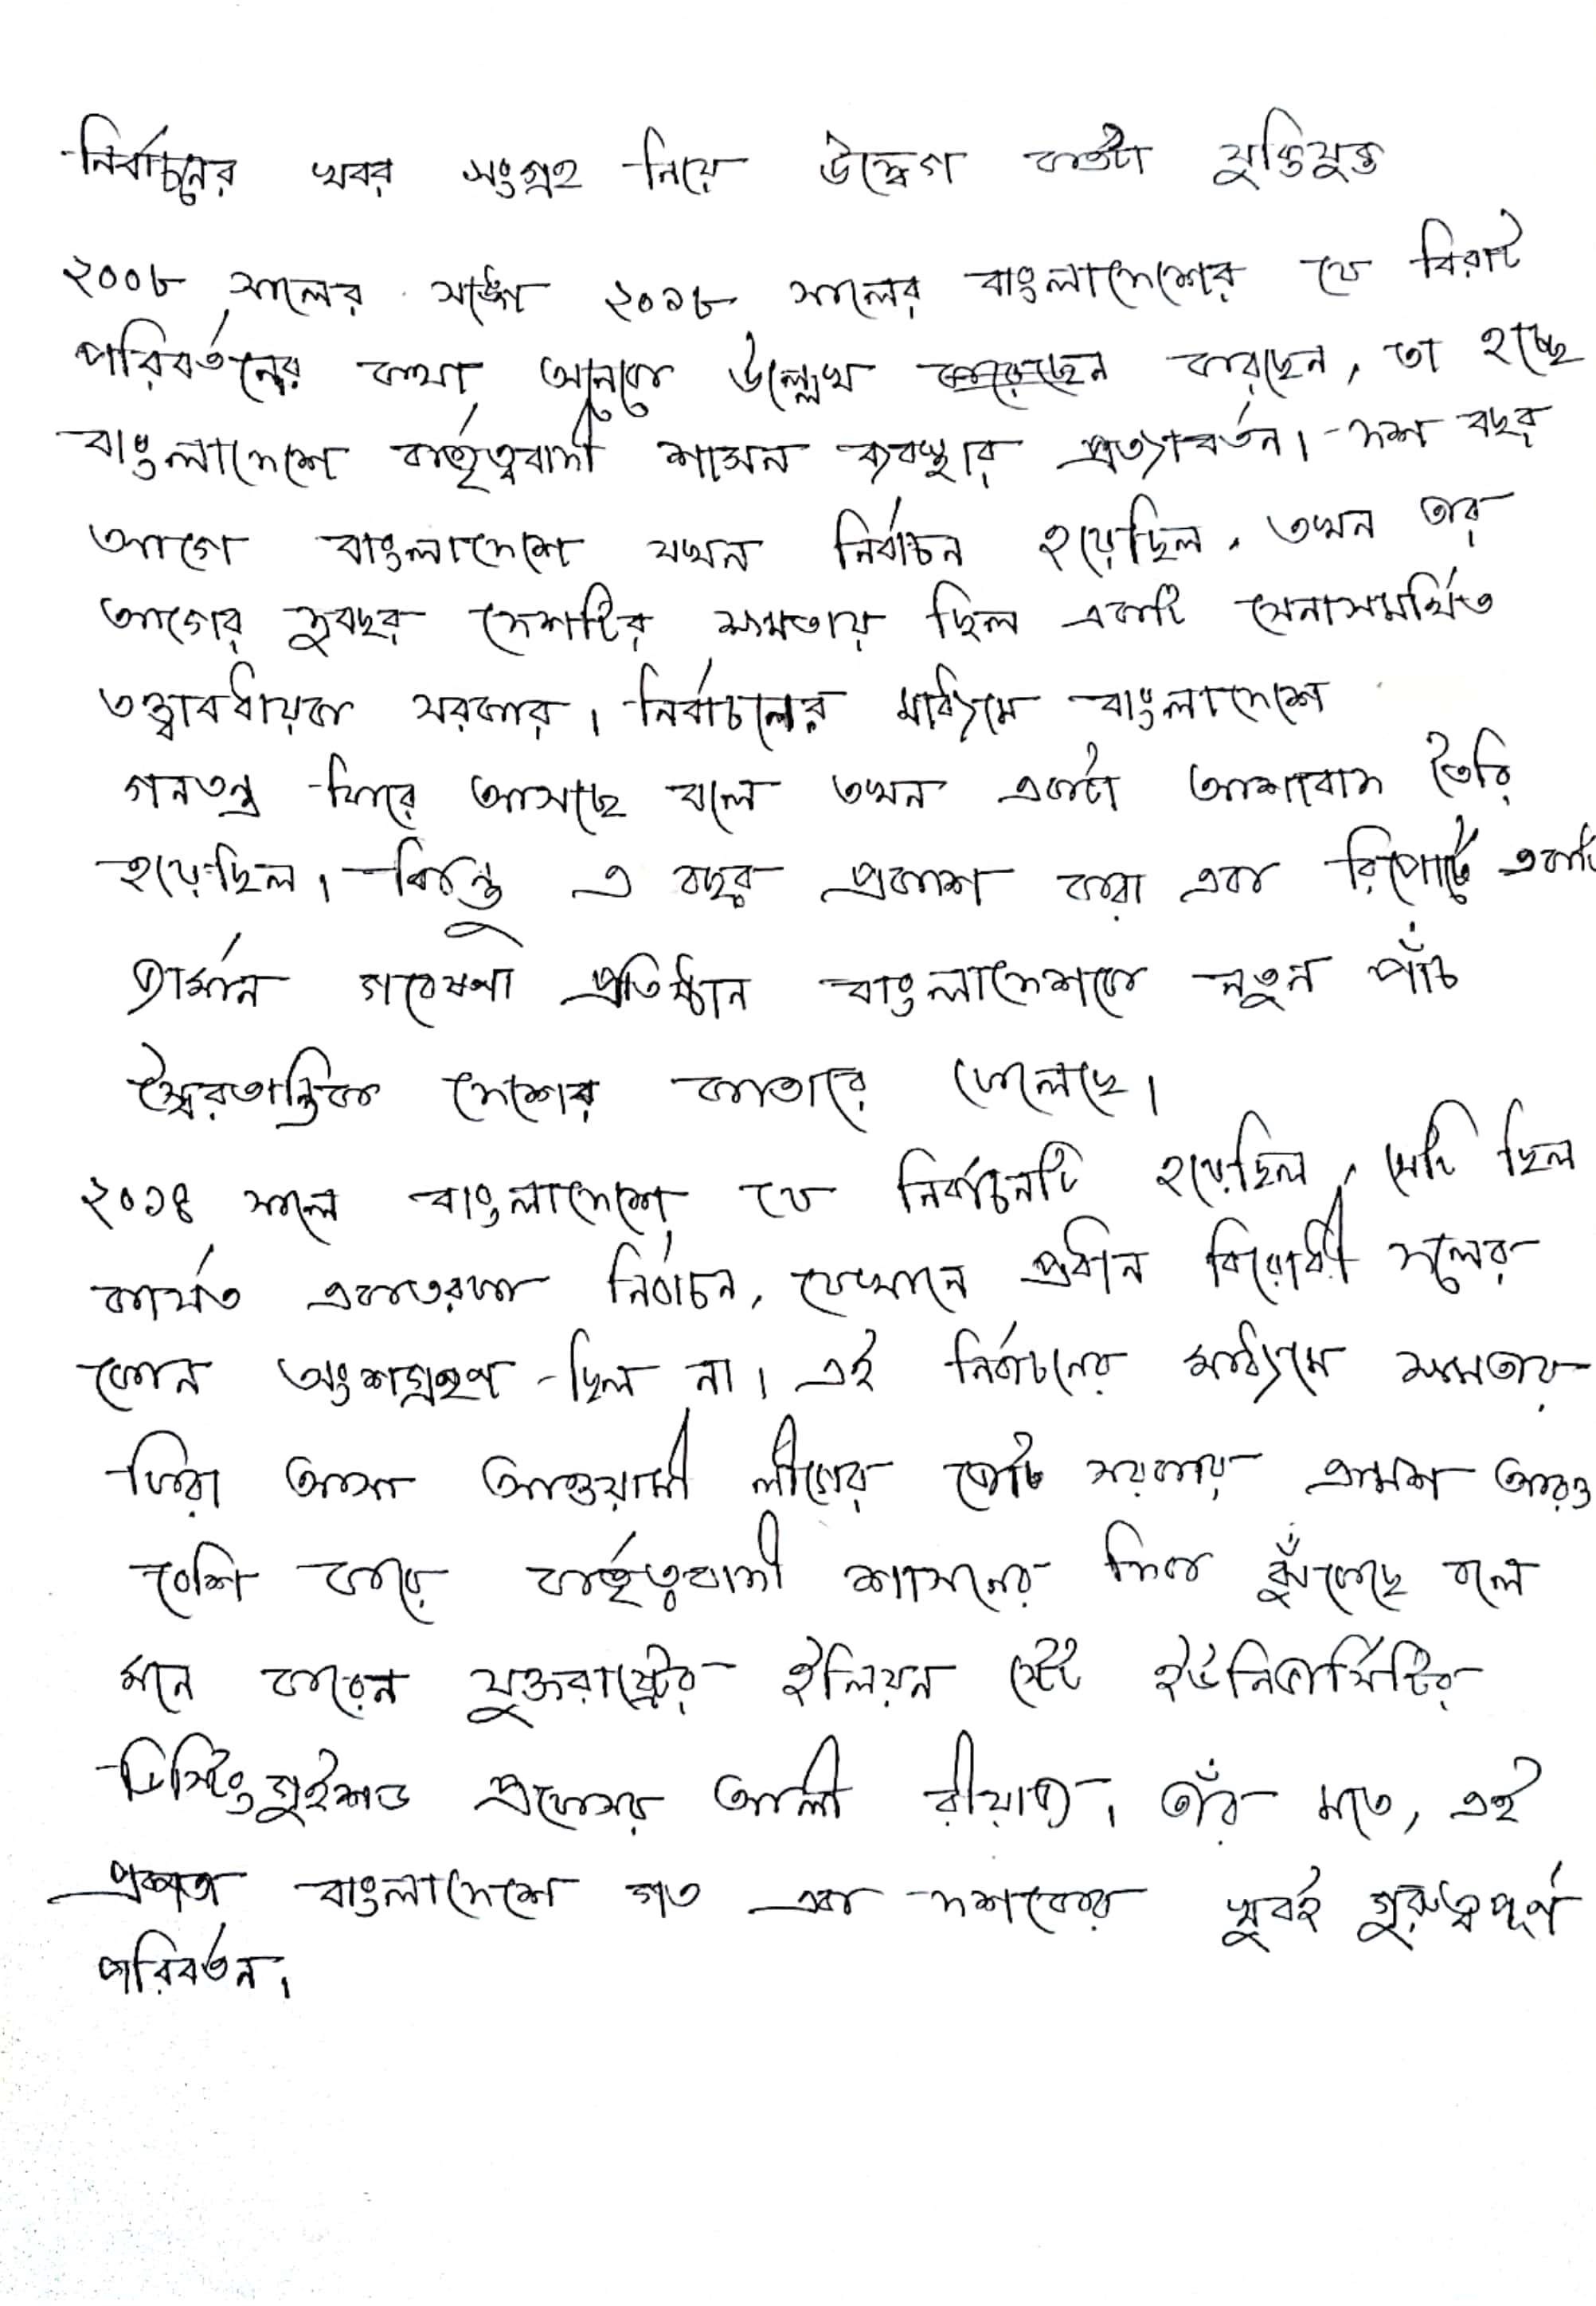 নির্বাচনের খবর সংগ্রহ নিয়ে উদ্বেগ কতটা যুক্তিযুক্ত
২০০৮ সালের সঙ্গে ২০১৮ সালের বাংলাদেশের যে বিরাট
পরিবর্তনের কথা অনেকে উল্লেখ করছেন, তা হচ্ছে
বাংলাদেশে কর্তৃত্ববাদী শাসন ব্যবস্থার প্রত্যাবর্তন। দশ বছর
আগে বাংলাদেশে যখন নির্বাচন হয়েছিল, তখন তার
আগের দুবছর দেশটির ক্ষমতায় ছিল একটি সেনাসমর্থিত
তত্ত্বাবধায়ক সরকার। নির্বাচনের মাধ্যমে বাংলাদেশে
গনতন্ত্র ফিরে আসছে বলে তখন একটা আশাবাদ তৈরি
হয়েছিল। কিন্তু এ বছর প্রকাশ করা এক রিপোর্টে একটি
জার্মান গবেষণা প্রতিষ্ঠান বাংলাদেশকে নতুন পাঁচ
স্বৈরতান্ত্রিক দেশের কাতারে ফেলেছে।
২০১৪ সালে বাংলাদেশে যে নির্বাচনটি হয়েছিল, সেটি ছিল
কার্যত একতরফা নির্বাচন, যেখানে প্রধান বিরোধী দলের
কোন অংশগ্রহণ ছিল না। এই নির্বাচনের মাধ্যমে ক্ষমতায়
ফিরা আসা আওয়ামী লীগের জোট সরকার ক্রমশ আরও
বেশি করে কর্তৃত্ববাদী শাসনের দিকে ঝুঁকেছে বলে
মনে করেন যুক্তরাষ্ট্রের ইলিয়ন স্টেট ইউনিভার্সিটির
ডিস্টিংগুইশড প্রফেসর আলী রীয়াজ। তাঁর মতে, এই
বাংলাদেশে গত এক দশকের খুবই গুরুত্বপূর্ণ
পরিবর্তন।